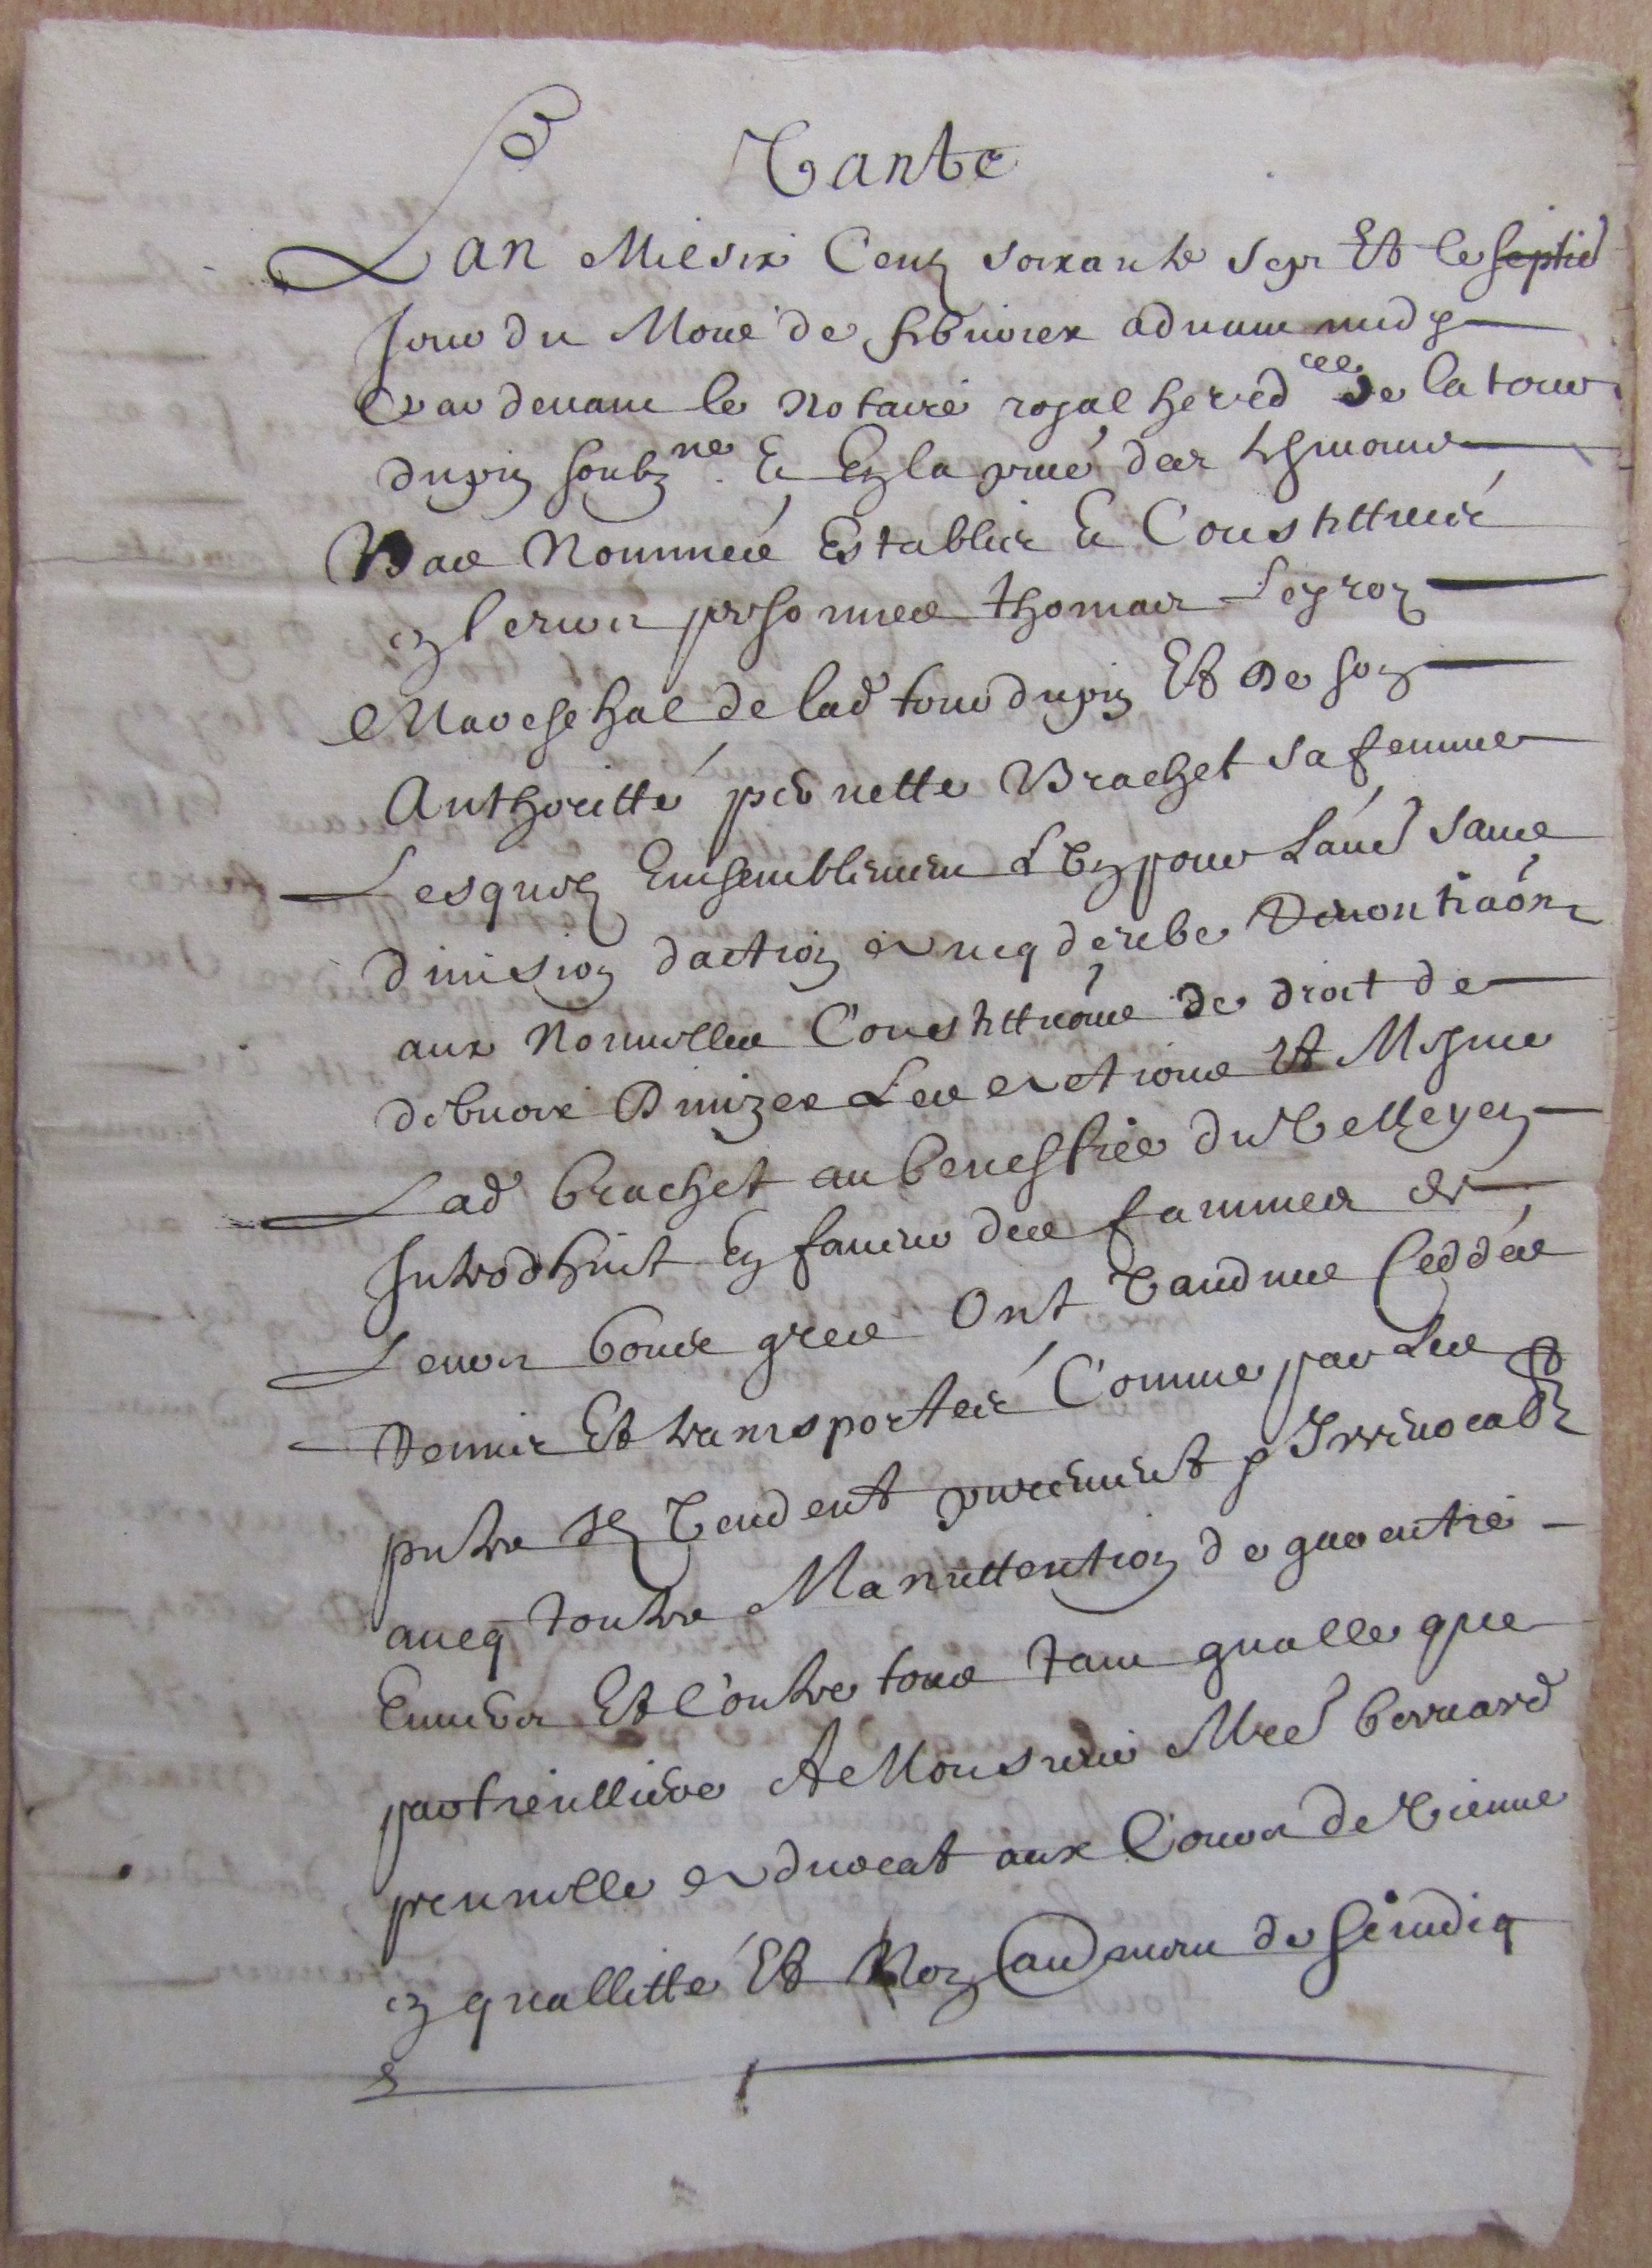 Vante
Lan Mil six Centz soixante sept Et le septie
Jour du Mois de febvrier advant midy
Par devant le Notaire royal hered re de la tour
dupin soubz ne Et En la pnce des tesmoins
Bas Nommés Establis Et Constittués
en leurs personnes thomas Leyroz
Mareschal de lad tour dupin Et De son
Authoritté pernette Brachet sa femme
Lesquelz Ensemblement L Un pour Laud sans
division daction avecq deube Renontiaon
aux Nouvelles Constittuons de droit de
debvoir Divizer Les actions Et Mesme
Lad brachet au beneffice du Velleyen
Introdhuit En faveur des fammes de
Leurs bons grés Ont Vandus Ceddés
Remis Et transportés Comme par Les
pntes Ilz Vendent purement Irrevocab
avecq toutte Manuttention de garentie
Envers Et Contre tous tant gnalle que
particulliere A Monsieur Mre bernard
prunelle advocat aux Cours de Vienne
en quallitté Et Non au nom de scindiq